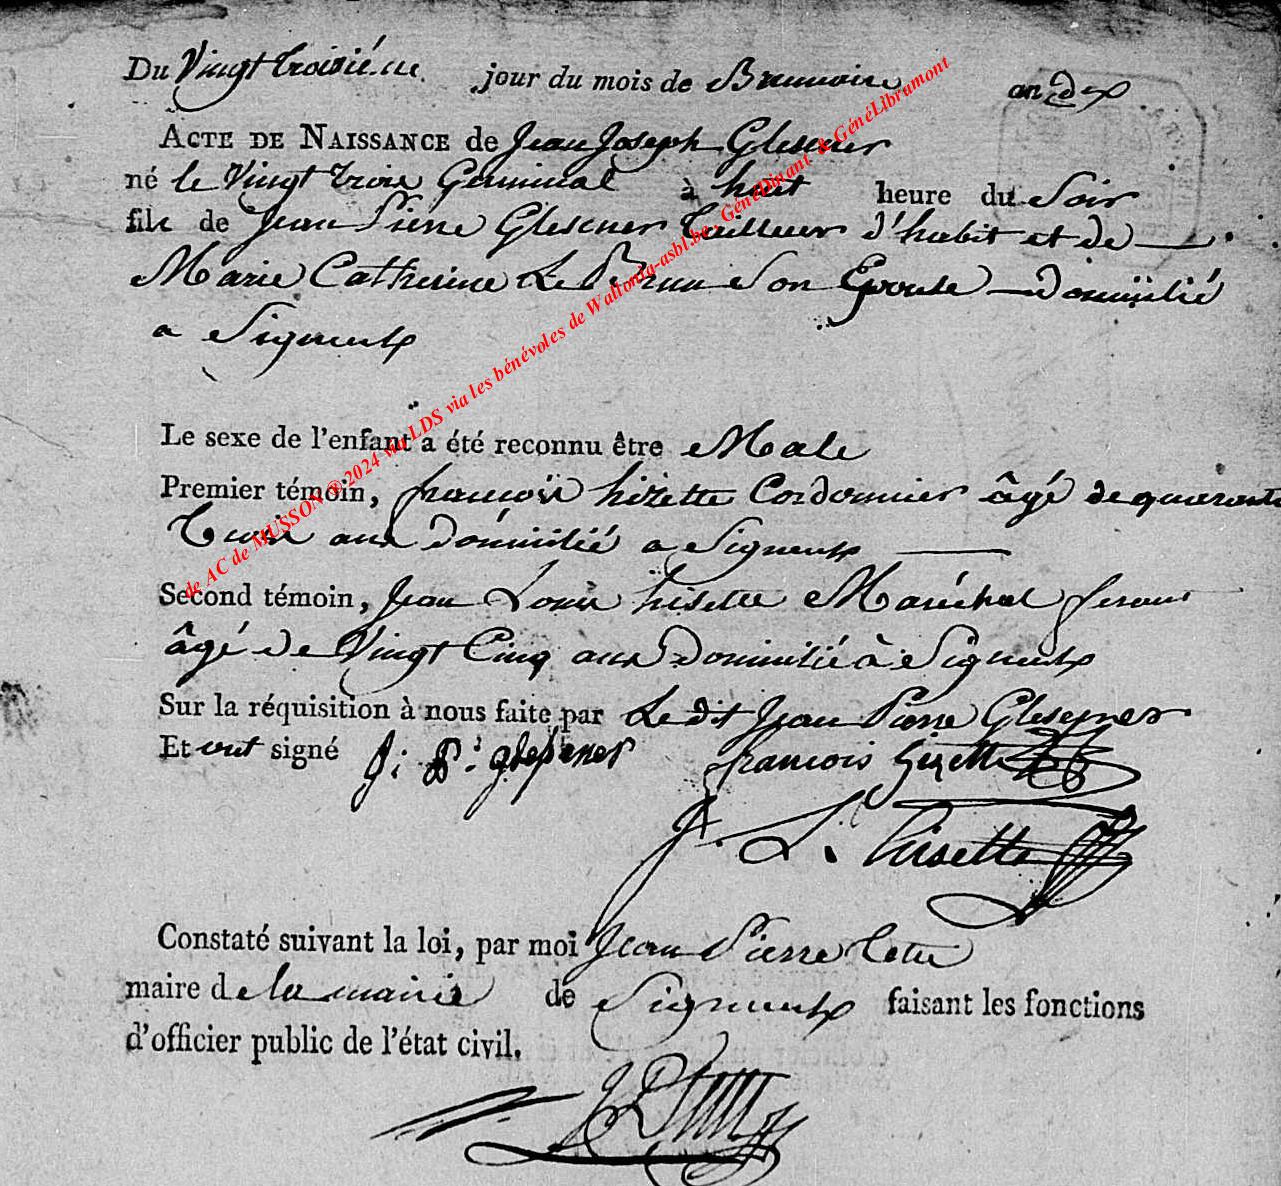 Du Vingt troisiéme jour du mois de Brumaire an dix
ACTE DE NAISSANCE de Jean Joseph Glesener
né le Vingt trois Germinal à huit heure du Soir
fils de Jean Pierre Glesener tailleur d'habit et de
Marie Catherine Le Brun Son Epouse domicilié
a Signeulx
Le sexe de l'enfant a été reconnu être Male
Premier témoin, françois hizette Cordonnier âgé de quarante
trois ans domicilié a Signeulx
Second témoin, Jean Louis hisette Maréchal ferant
âgé de Vingt Cinq ans Domicilié à Signeulx
Sur la réquisition à nous faite par Le dit Jean Pierre Glesener
Et ont signé J: P: glesener françois hizette
J. L. hisette
Constaté suivant la loi, par moi Jean Pierre
maire de la mairie de Signeulx faisant les fonctions
d'officier public de l'état civil.
de AC de MUSSON ® 2024 via LDS via les bénévoles de Wallonia-asbl.be, GénéDinant & GénéLibramont